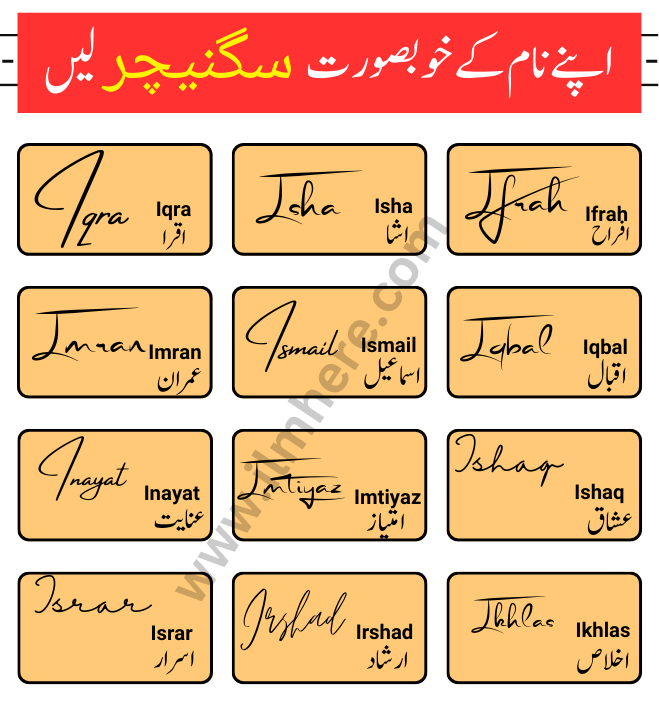 اپنے نام کے خوبصورت سگنیچر لیں
Iqra
Iqra
اقرا
Isha
Isha
اشا
Ifrah
Ifrah
افراح
Imran
Imran
عمران
Ismail
Ismail
اسماعیل
Iqbal
Iqbal
اقبال
Inayat
Inayat
عنایت
Imtiyaz
Imtiyaz
امتیاز
Ishaq
Ishaq
عشاق
Israr
Israr
اسرار
Irshad
Irshad
ارشاد
Ikhlas
Ikhlas
اخلاص
www.ilmhere.com